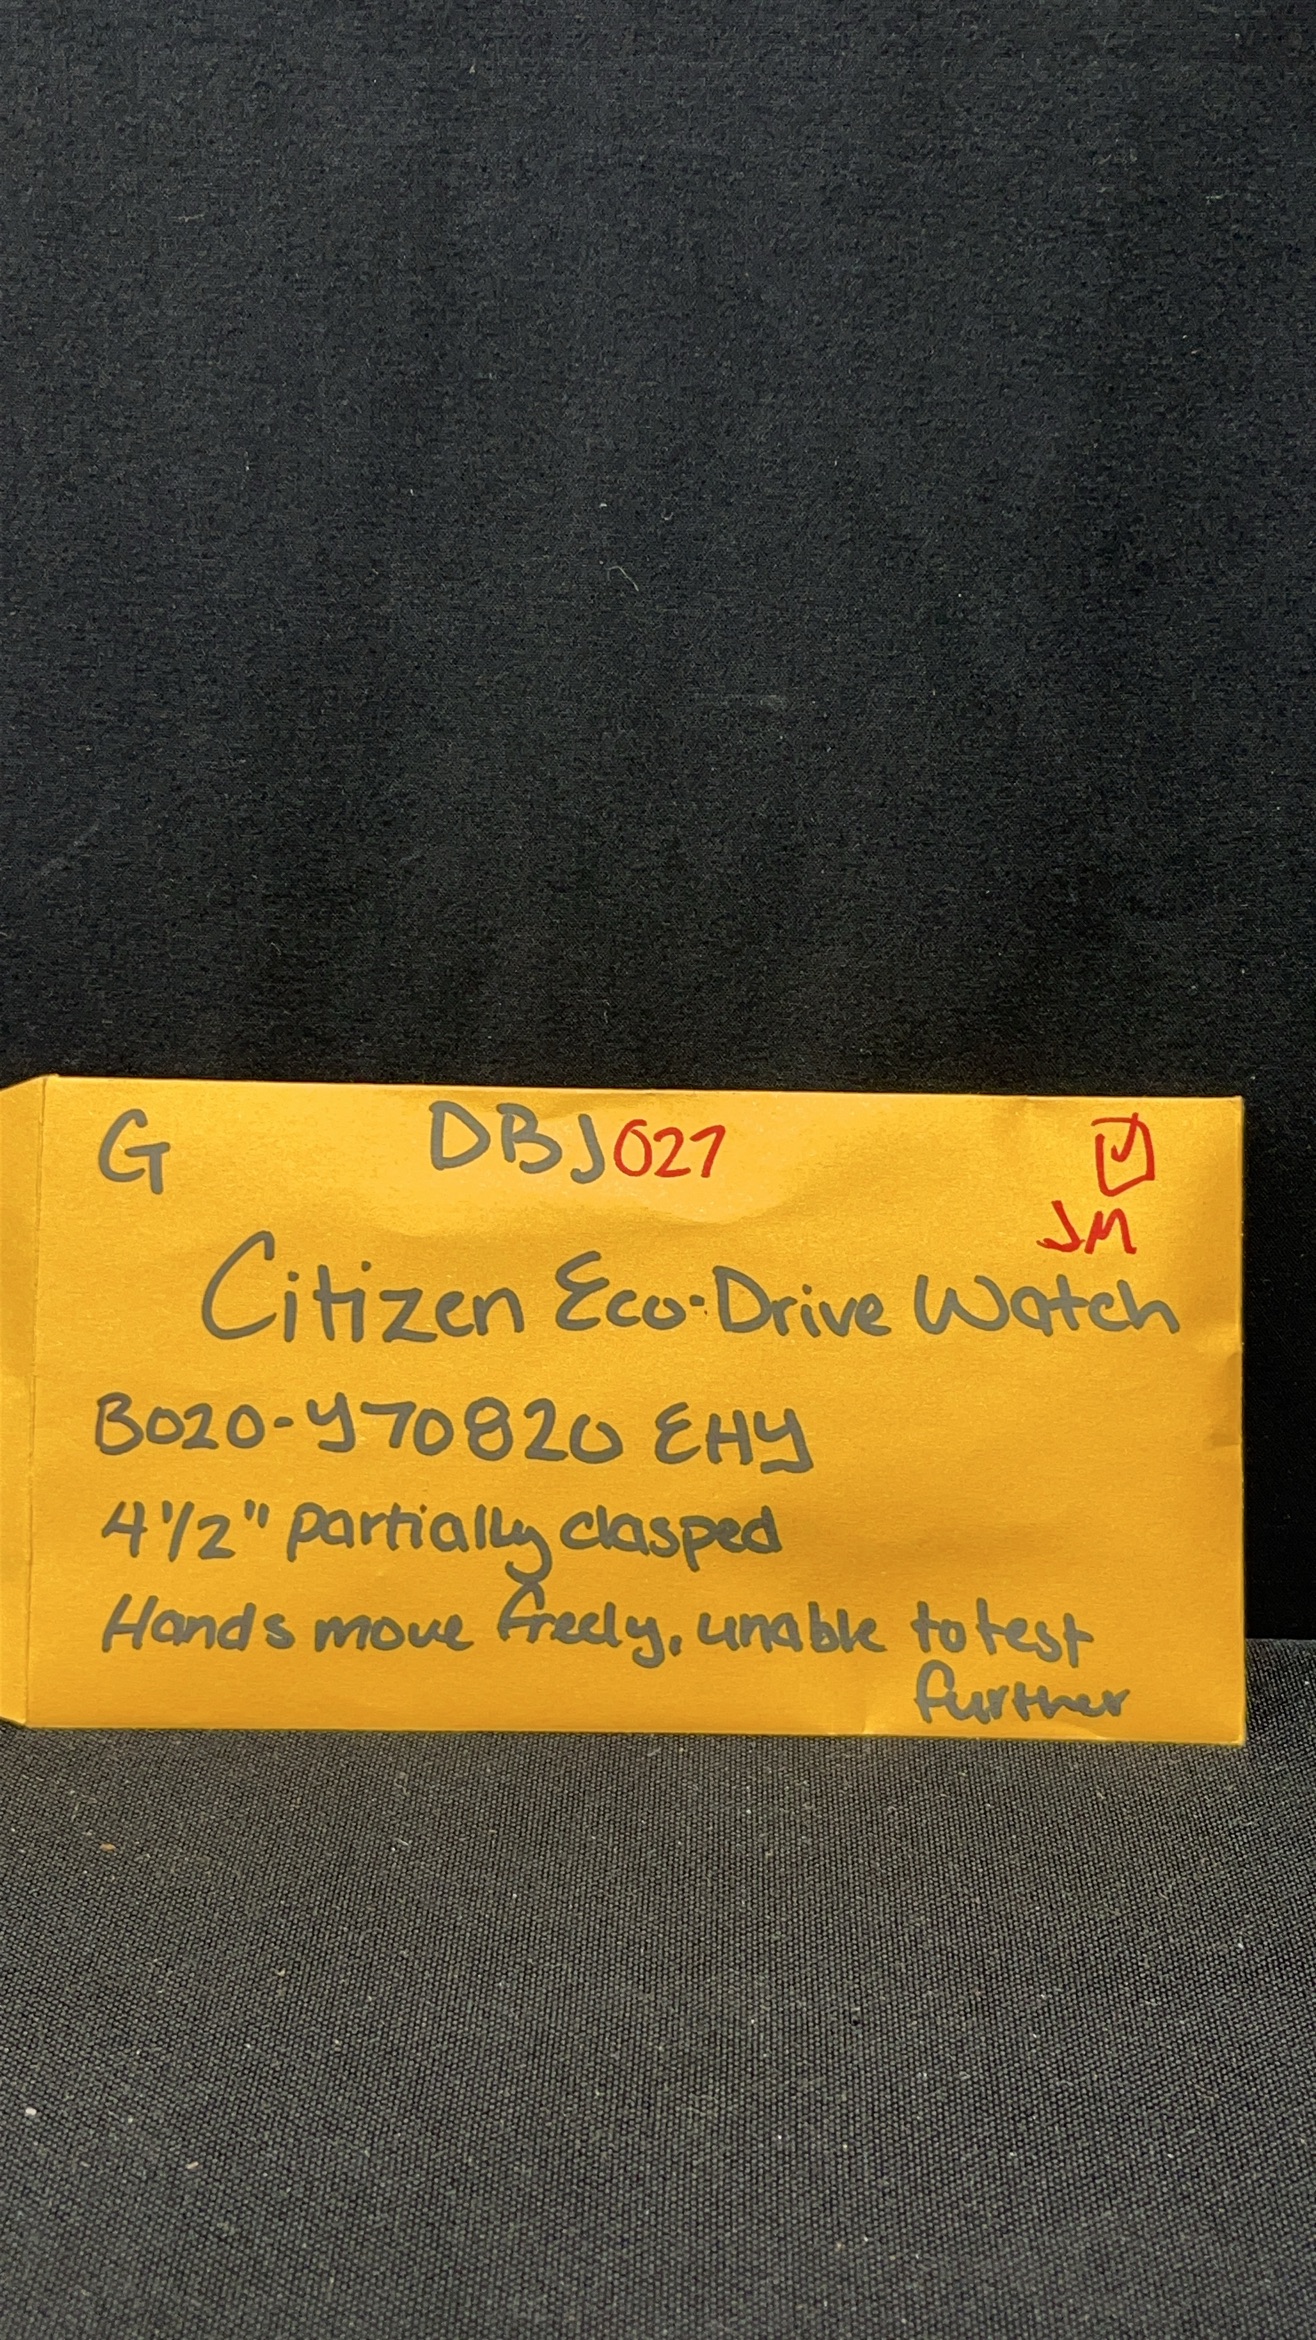 G DBJ027
JM
Citizen Eco-Drive Watch
B020-Y70820 EHY
4 1/2" partially clasped
Hands move freely, unable to test
further